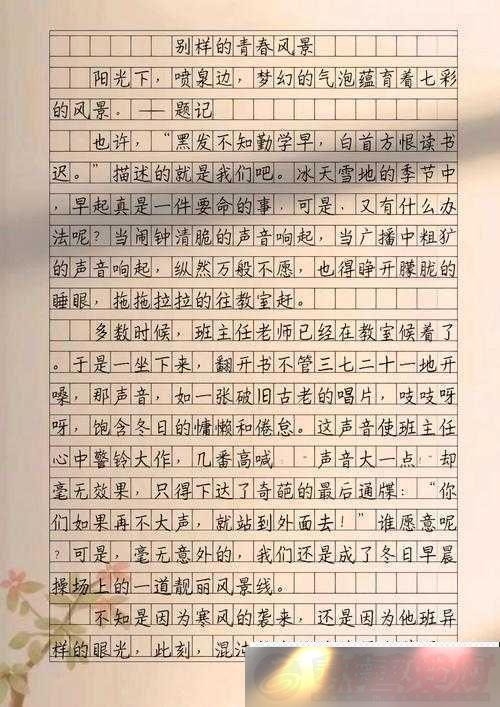 别样的青春风景
阳光下，喷泉边，梦幻的气泡蕴育着七彩
的风景。——题记
也许，“黑发不知勤学早，白首方恨读书
迟。”描述的就是我们吧。冰天雪地的季节中
，早起真是一件要命的事，可是，又有什么办
法呢？当闹钟清脆的声音响起，当广播中粗犷
的声音响起，纵然万般不愿，也得睁开朦胧的
睡眼，拖拖拉拉的往教室赶。
多数时候，班主任老师已经在教室候着了
。于是一坐下来，翻开书不管三七二十一地开
嗓，那声音，如一张破旧古老的唱片，吱吱呀
呀，饱含冬日的慵懒和倦怠。这声音使班主任
心中警铃大作，几番高喊 声音大一点 却
毫无效果，只得下达了奇葩的最后通牒：“你
们如果再不大声，就站到外面去！”谁愿意呢
？可是，毫无意外的，我们还是成了冬日早晨
操场上的一道靓丽风景线。
不知是因为寒风的袭来，还是因为他班异
样的眼光，此刻，混沌